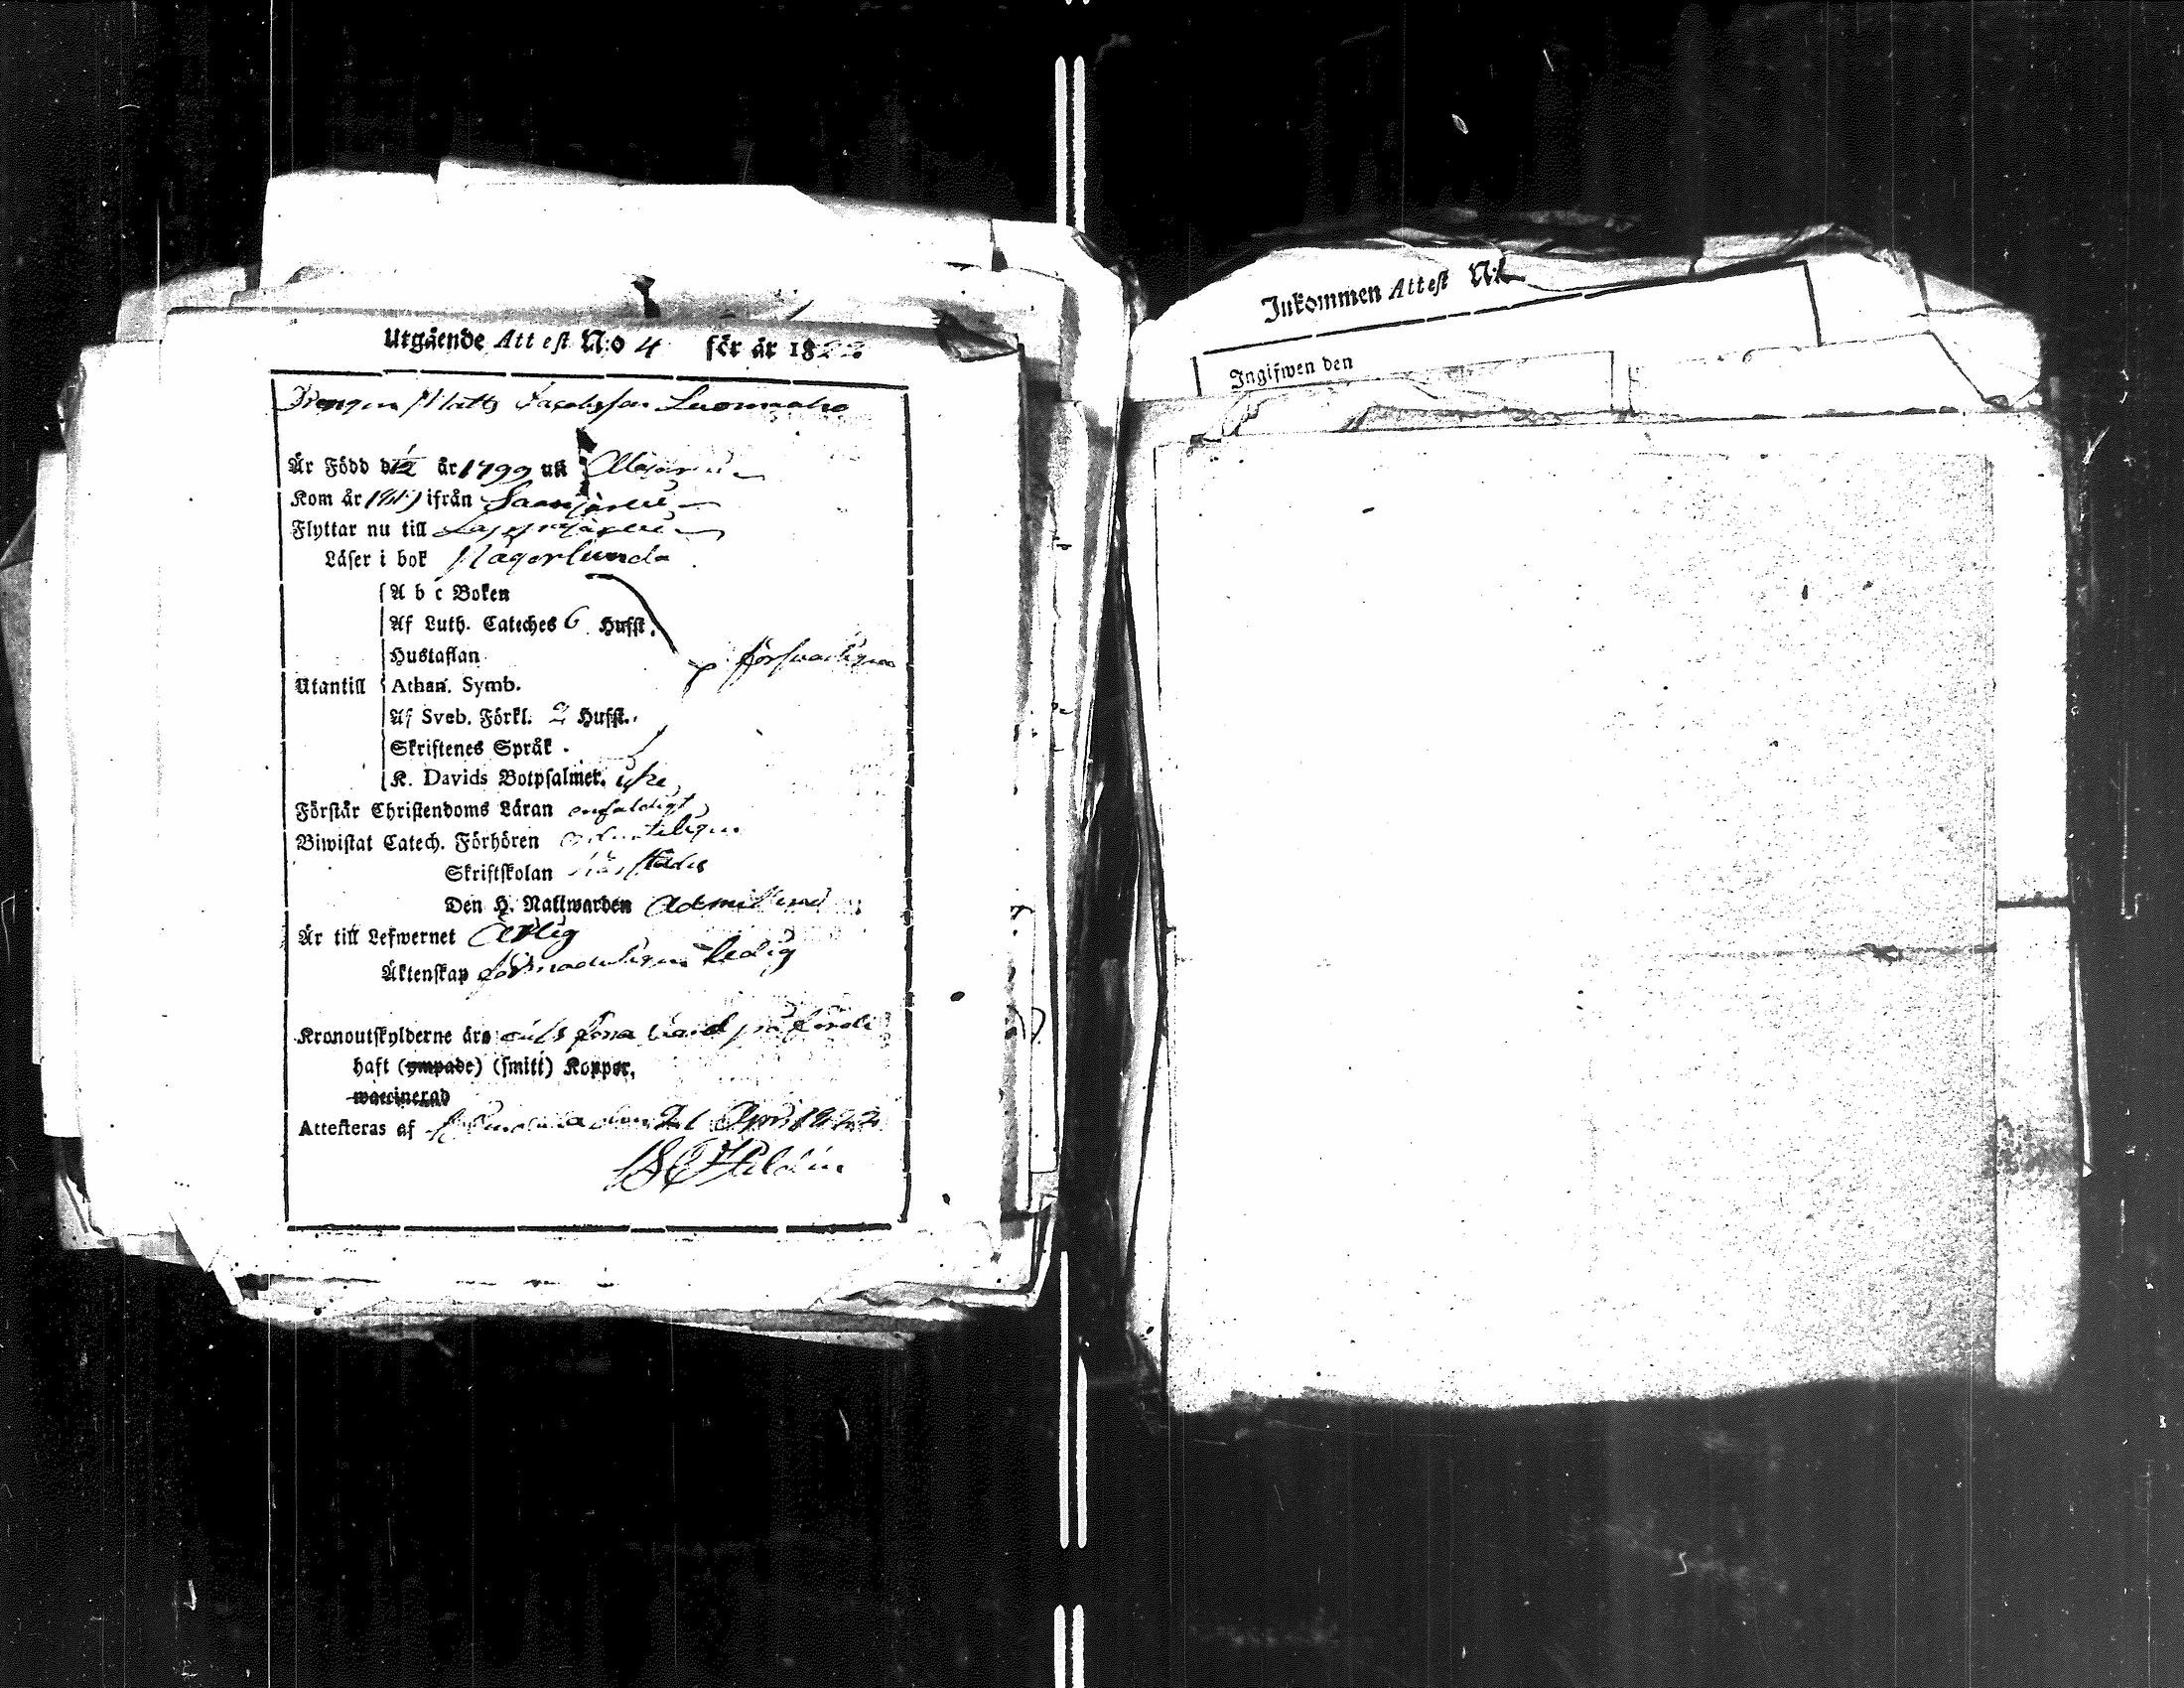 Utgående Attest N:o 4 för år 1822
Drengen Matts Jacobsson Luomaaho
Är Född d. 12 år 1799 uti Alajärvi
Kom år ifrån Saarijärvi
Flyttar nu till Lappajärvi
Läser i bok Någorlunda
A b c Boken
Af Luth. Cateches 6 Hufst.
Hustaflan
försvarligen
Utantill Athan. Symb.
Af Sveb. Förkl. 2 Hufst.
Skriftenes Språk
K. Davids Botpsalmer. icke
Förstår Christendoms Läran enfaldigt
Biwistat Catech. Förhören ordenteligen
Skriftskolan
Den H. Nattwarden Admitterad
Är till Lefwernet Ärlig
Äktenskap förmodeligen ledig
Kronoutskylderne äro
haft (ympade) (smitt) Koppor,
waccinerad
Attesteras af den 21 April 1822
Inkommen Attest N:o
Ingifwen den